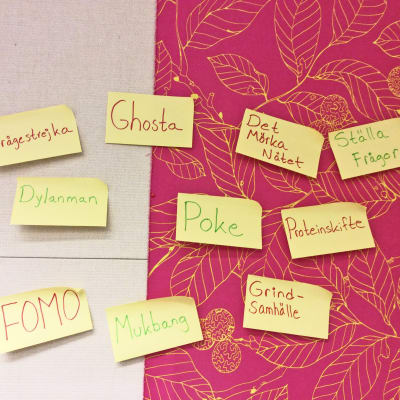 Ghosta
Det
Mörka
Nätet
Ställa
Frågor
rågestrejka
Dylanman
Poke
Proteinskifte
FOMO
Mukbang
Grind-
Samhälle